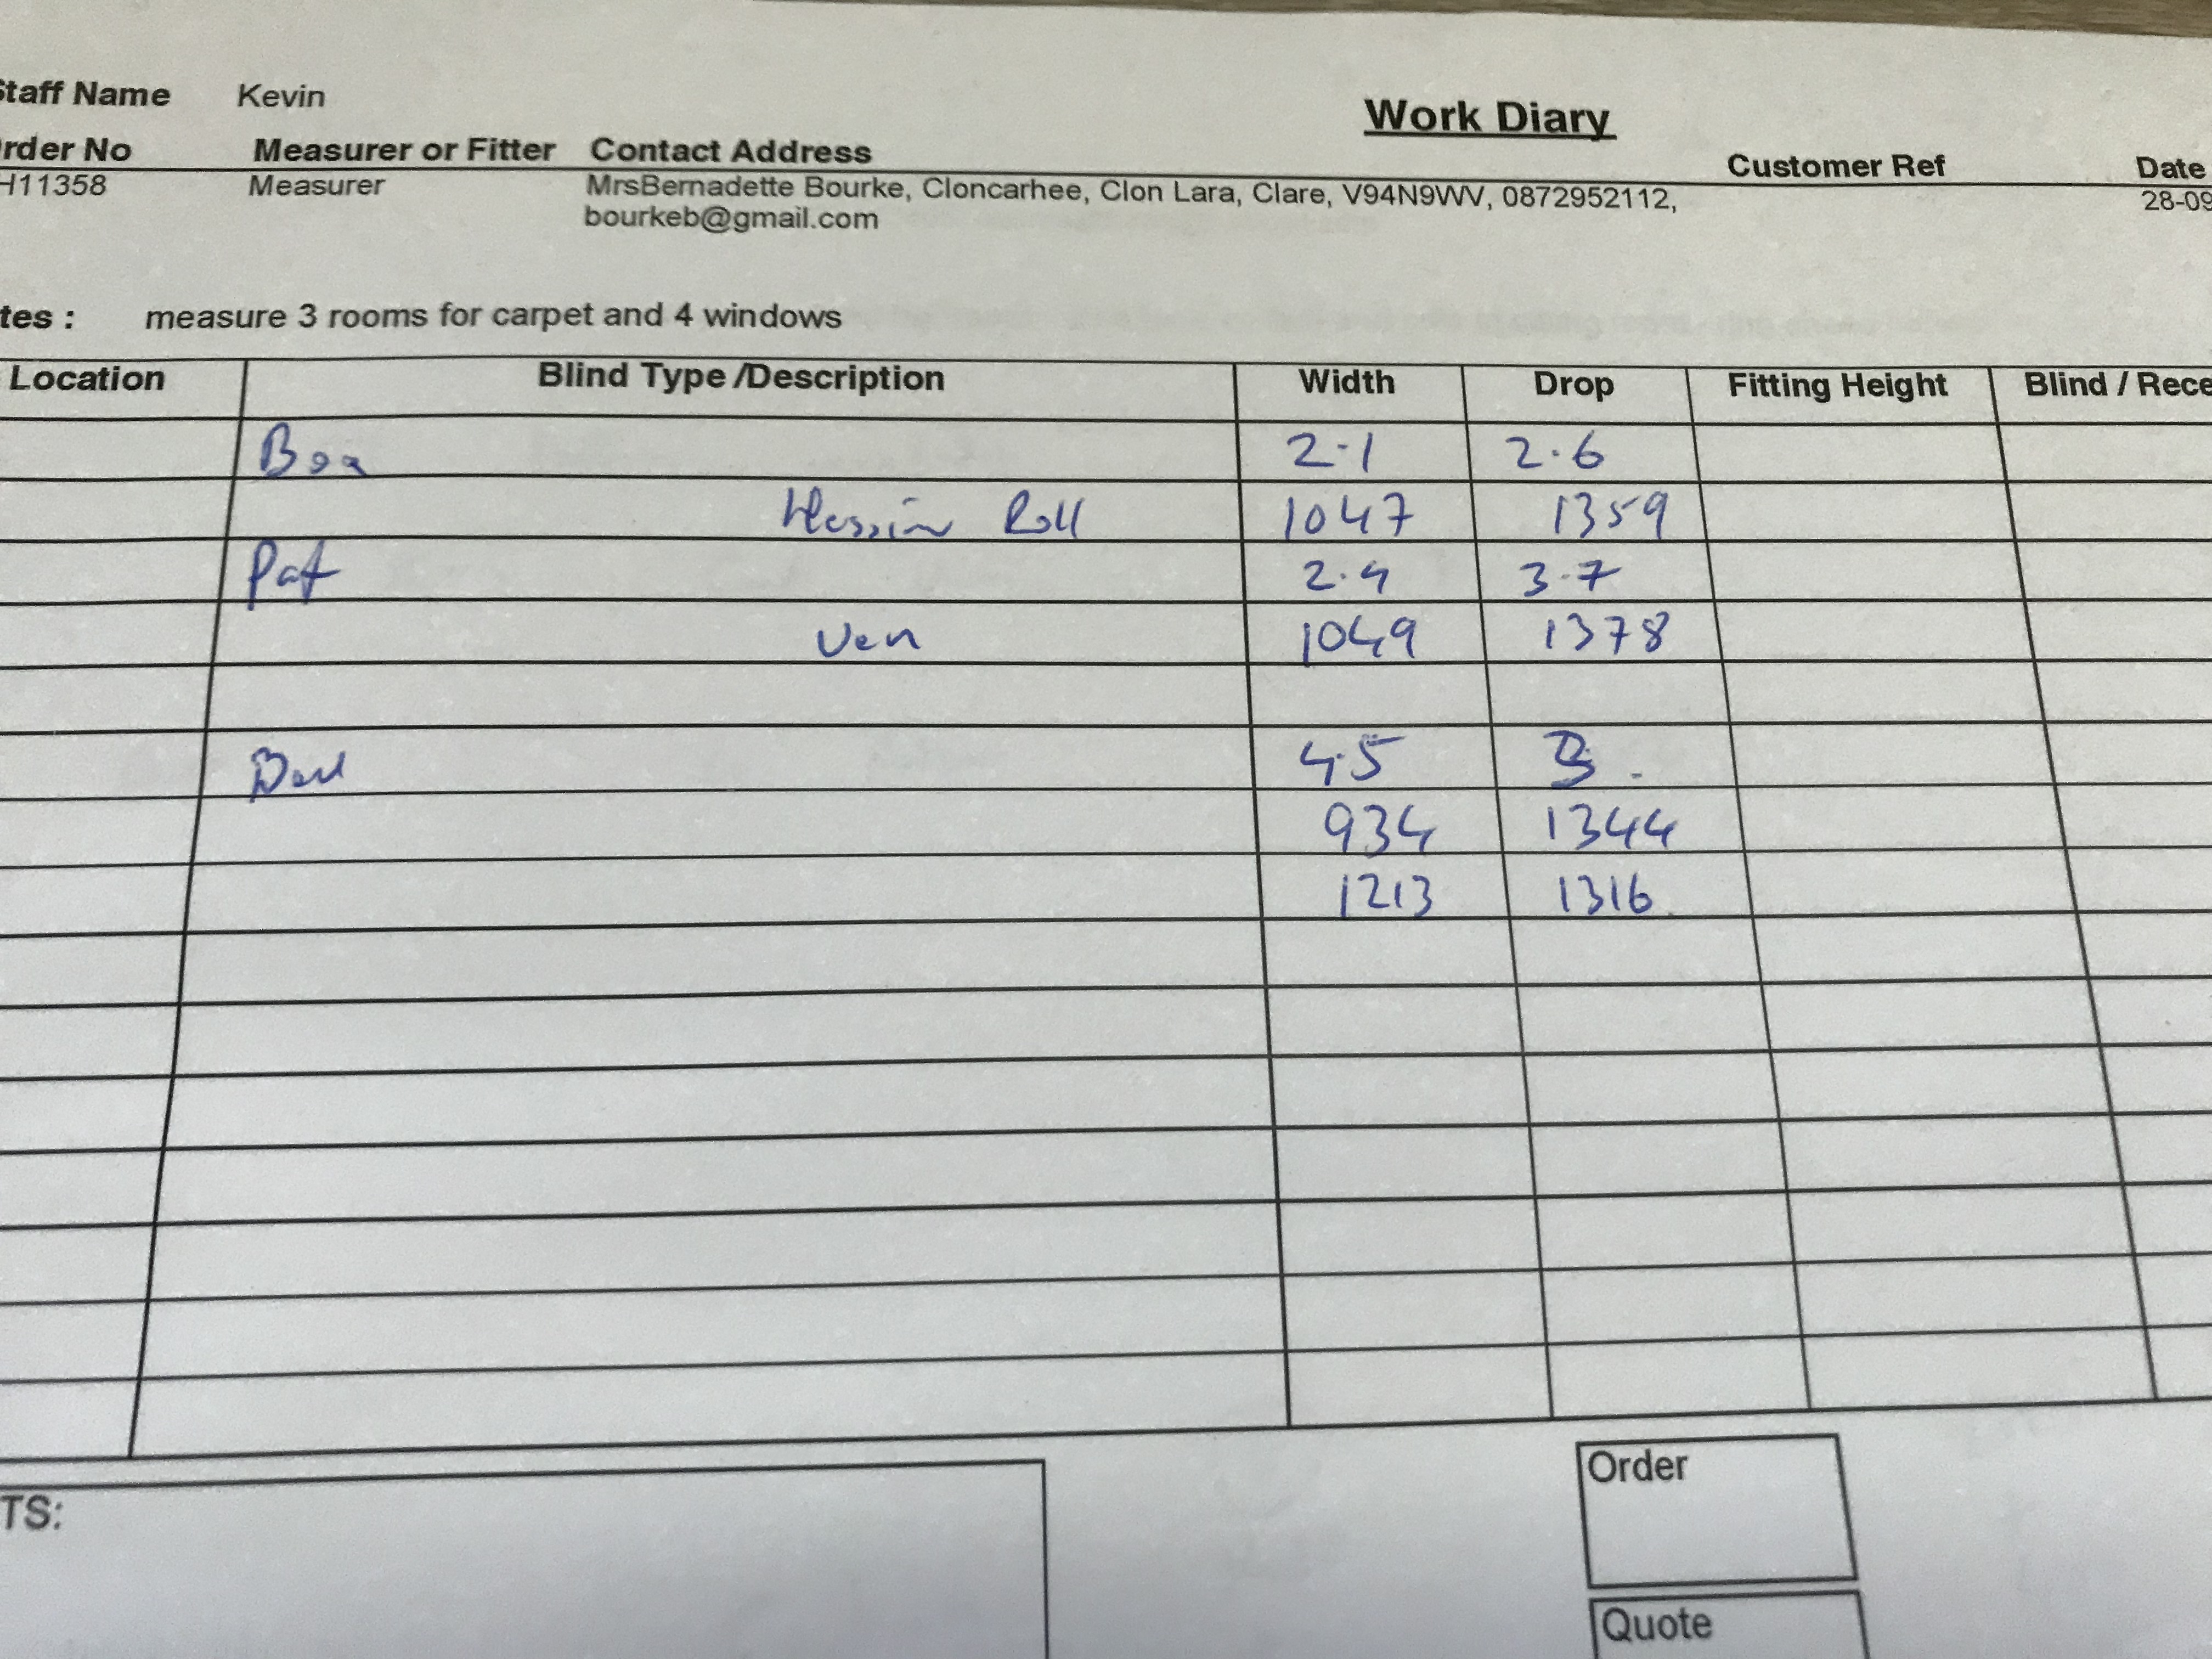 Staff Name Kevin
Work Diary
Order No Measurer or Fitter Contact Address Customer Ref Date
H11358 Measurer MrsBernadette Bourke, Cloncarhee, Clon Lara, Clare, V94N9WV, 0872952112, 28-09
bourkeb@gmail.com
tes : measure 3 rooms for carpet and 4 windows
Location Blind Type /Description Width Drop Fitting Height Blind / Rece
2.1 2.6
Hessian Roll 1047 1359
Pat 2.4 3.7
Ven 1049 1378
4.5 3
934 1344
1213 1316
Order
TS:
Quote